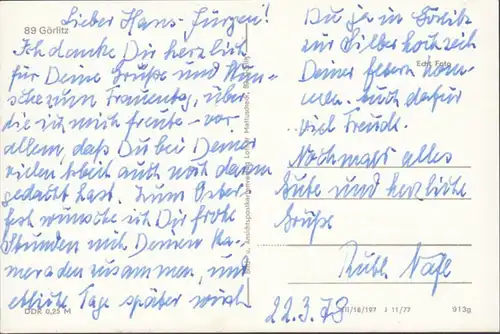 Lieber Hans-Jürgen!
89 Görlitz
Ich danke Dir herzlich
für Deine Grüße und Wün-
sche zum Frauentag, über
die ich mich freute - vor
allem, daß Du bei Deiner
vielen Arbeit auch noch daran
gedacht hast. Zum Oster-
fest wünsche ich Dir frohe
Stunden mit Deinen Ka-
meraden zusammen, und
etliche Tage später wirst
DDR 0,25 M
Bild- u. Ansichtskartenverlag
Du ja in Görlitz
zur Silberhochzeit
Deiner Eltern kom-
men. Auch dafür
viel Freude.
Nochmals alles
Gute und herzliche
Grüße
22.3.78
III/18/197 J 11/77
913g